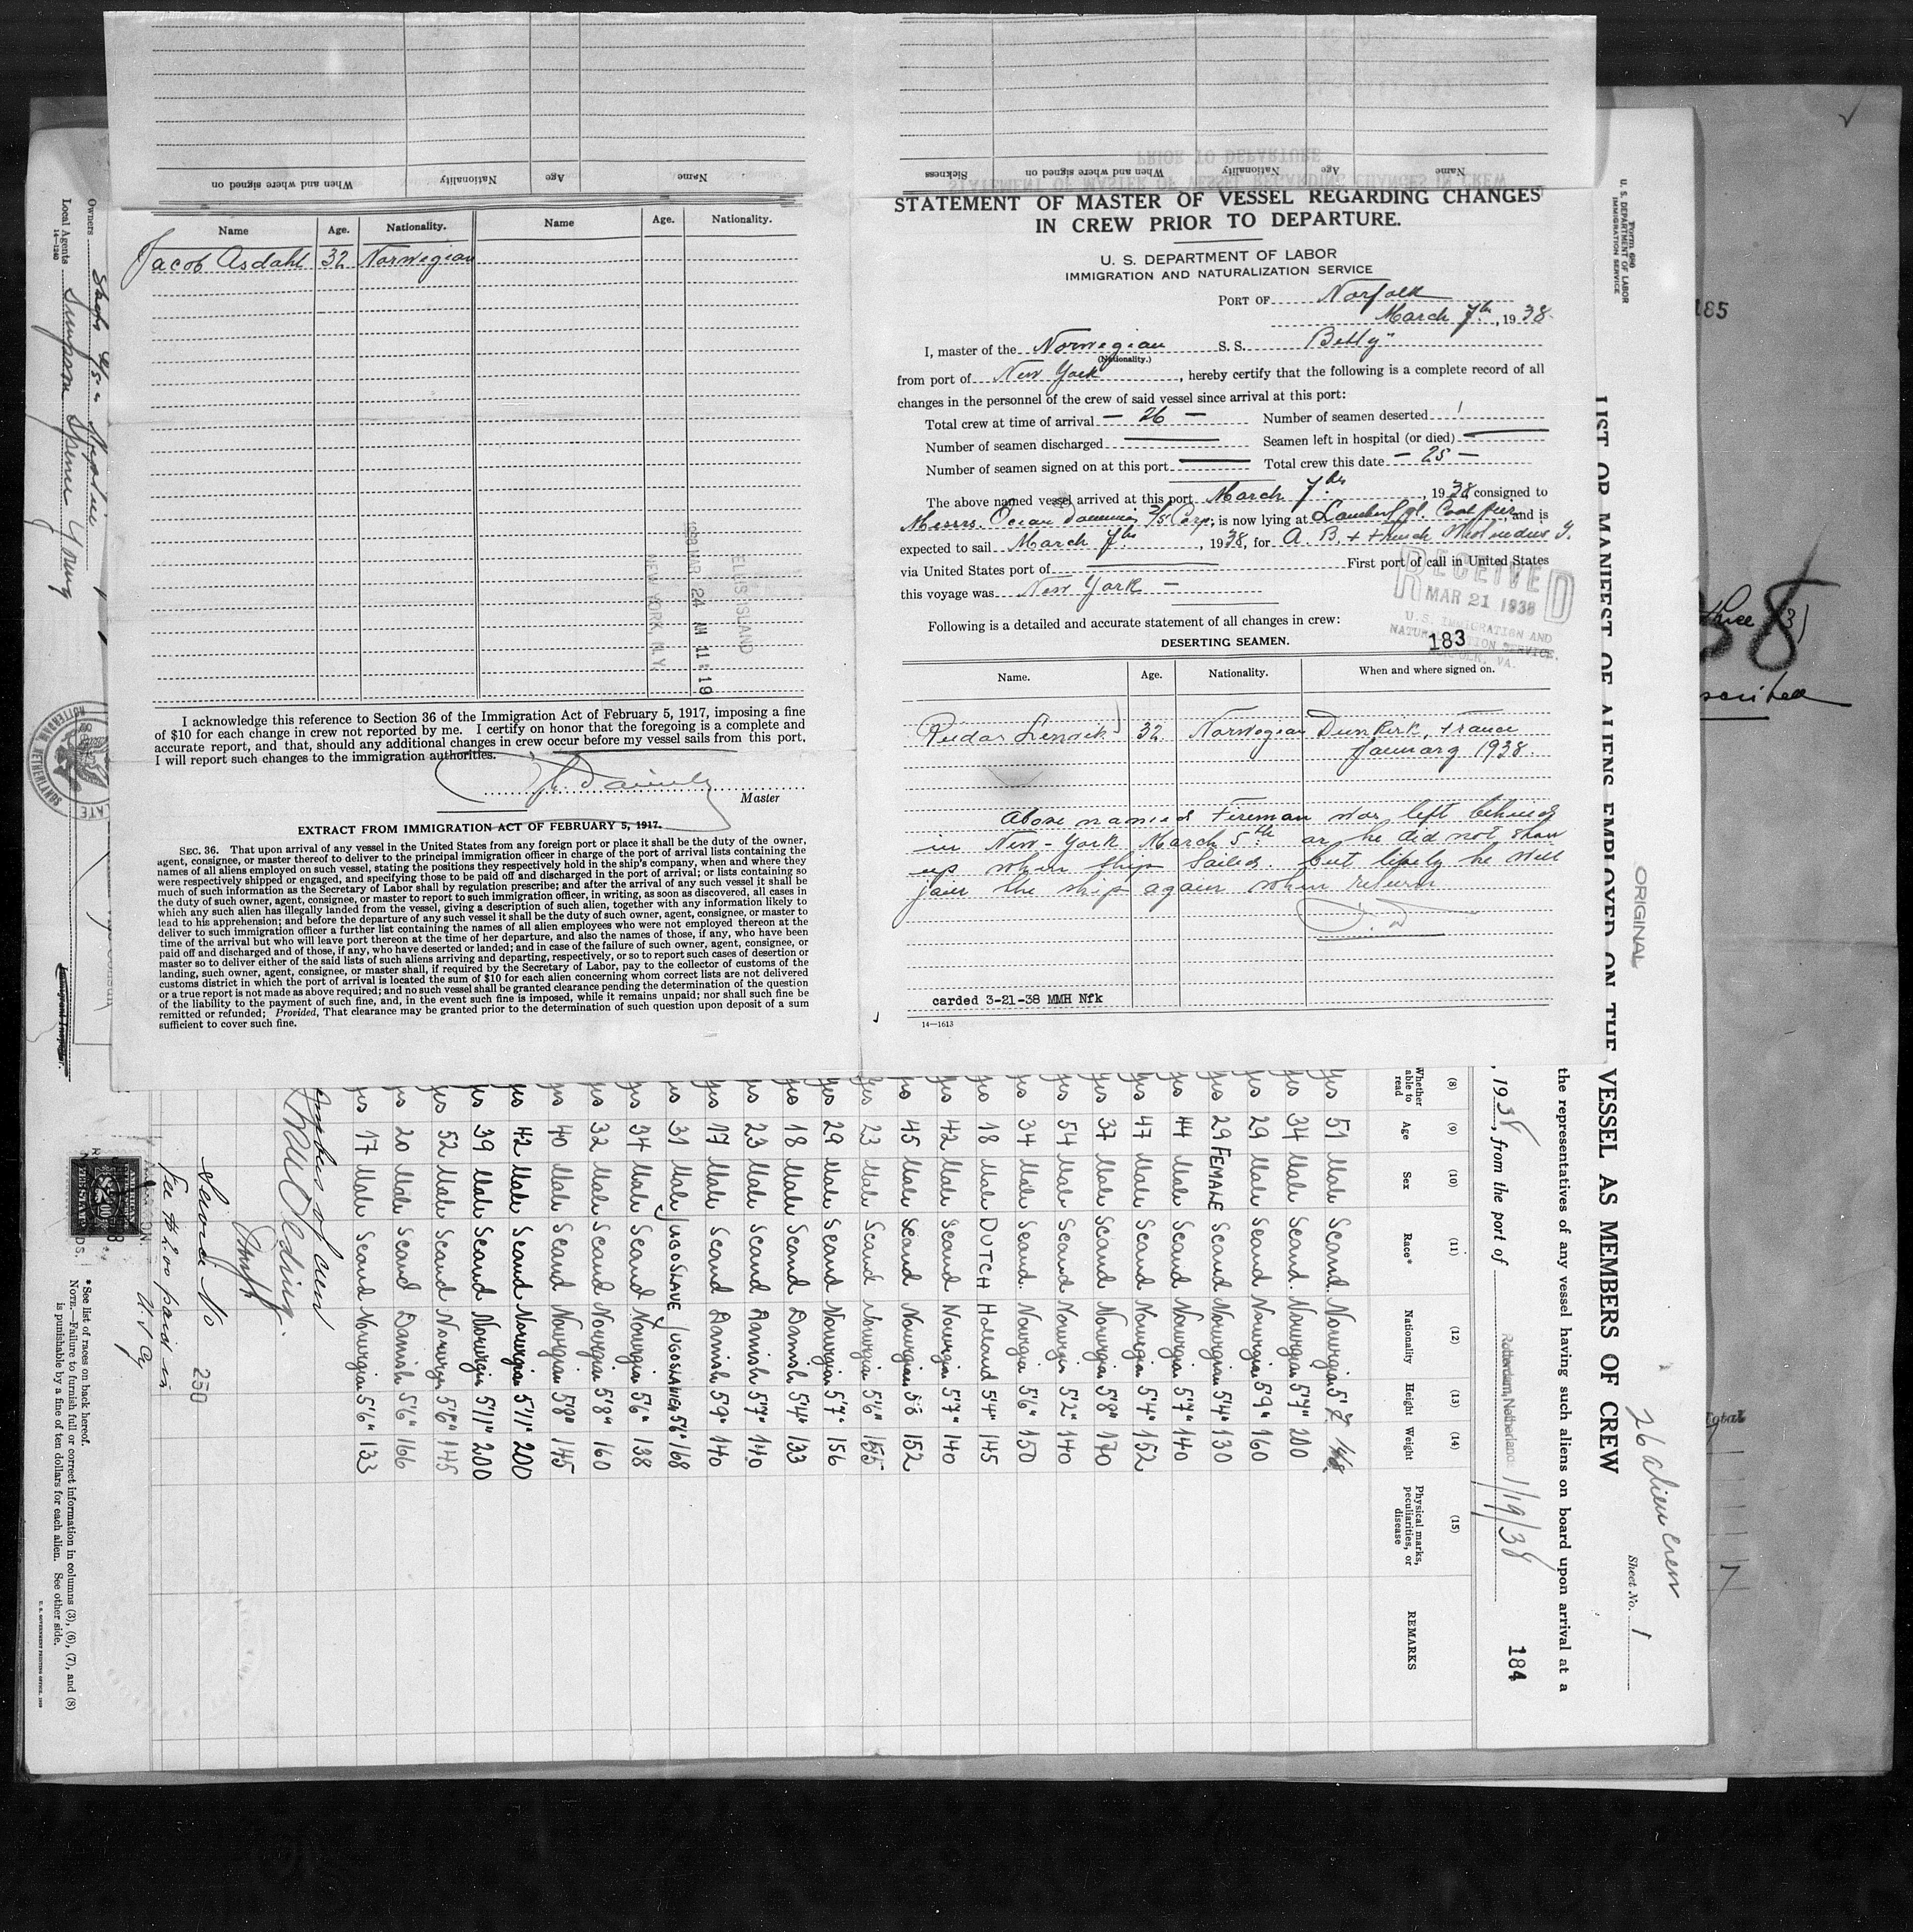 Name Age Nationality When and where signed on
Name Age Nationality When and where signed on Sickness
Name Age. Nationality. Name Age. Nationality.
Jacob Asdahl 32 Norwegian
1938 MAR 24 AM 11:19
ELLIS ISLAND
NEW YORK, N.Y.
I acknowledge this reference to Section 36 of the Immigration Act of February 5, 1917, imposing a fine
of $10 for each change in crew not reported by me. I certify on honor that the foregoing is a complete and
accurate report, and that, should any additional changes in crew occur before my vessel sails from this port,
I will report such changes to the immigration authorities.
Master
EXTRACT FROM IMMIGRATION ACT OF FEBRUARY 5, 1917.
SEC. 36. That upon arrival of any vessel in the United States from any foreign port or place it shall be the duty of the owner,
agent, consignee, or master thereof to deliver to the principal immigration officer in charge of the port of arrival lists containing the
names of all aliens employed on such vessel, stating the positions they respectively hold in the ship's company, when and where they
were respectively shipped or engaged, and specifying those to be paid off and discharged in the port of arrival; or lists containing so
much of such information as the Secretary of Labor shall by regulation prescribe; and after the arrival of any such vessel it shall be
the duty of such owner, agent, consignee, or master to report to such immigration officer, in writing, as soon as discovered, all cases in
which any such alien has illegally landed from the vessel, giving a description of such alien, together with any information likely to
lead to his apprehension; and before the departure of any such vessel it shall be the duty of such owner, agent, consignee, or master to
deliver to such immigration officer a further list containing the names of all alien employees who were not employed thereon at the
time of the arrival but who will leave port thereon at the time of her departure, and also the names of those, if any, who have been
paid off and discharged and of those, if any, who have deserted or landed; and in case of the failure of such owner, agent, consignee, or
master so to deliver either of the said lists of such aliens arriving and departing, respectively, or so to report such cases of desertion or
landing, such owner, agent, consignee, or master shall, if required by the Secretary of Labor, pay to the collector of customs of the
customs district in which the port of arrival is located the sum of $10 for each alien concerning whom correct lists are not delivered
or a true report is not made as above required; and no such vessel shall be granted clearance pending the determination of the question
of the liability to the payment of such fine, and, in the event such fine is imposed, while it remains unpaid; nor shall such fine be
remitted or refunded; Provided, That clearance may be granted prior to the determination of such question upon deposit of a sum
sufficient to cover such fine.
STATEMENT OF MASTER OF VESSEL REGARDING CHANGES
IN CREW PRIOR TO DEPARTURE.
U. S. DEPARTMENT OF LABOR
IMMIGRATION AND NATURALIZATION SERVICE
PORT OF Norfolk
March 7th, 1938
I, master of the Norwegian S. S. Betty"
(Nationality.)
from port of New York, hereby certify that the following is a complete record of all
changes in the personnel of the crew of said vessel since arrival at this port:
Total crew at time of arrival — 26 — Number of seamen deserted 1
Number of seamen discharged Seamen left in hospital (or died)
Number of seamen signed on at this port Total crew this date — 25 —
The above named vessel arrived at this port March 7th, 1938 consigned to
Messrs. Ocean S/S Corp; is now lying at Coal pier, and is
expected to sail March 7th, 1938, for
via United States port of First port of call in United States
this voyage was New York —
RECEIVED
MAR 21 1938
U.S. IMMIGRATION AND
NATURALIZATION SERVICE.
NORFOLK, VA.
Following is a detailed and accurate statement of all changes in crew:
DESERTING SEAMEN. 183
Name. Age. Nationality. When and where signed on.
32 Norwegian Dunkirk, France
January 1938.
Above named Fireman was left behind
in New-York March 5th as he did not show
up when ship sailed. but likely he will
join the ship again when return
carded 3-21-38 MMH Nfk
14—1613
Form 680
U. S. DEPARTMENT OF LABOR
IMMIGRATION SERVICE
ORIGINAL
26 alien crew
Sheet No. 1
LIST OR MANIFEST OF ALIENS EMPLOYED ON THE VESSEL AS MEMBERS OF CREW
the representatives of any vessel having such aliens on board upon arrival at a
, 1938, from the port of Rotterdam, Netherlands 1/19/38
184
(8) (9) (10) (11) (12) (13) (14) (15)
Whether able to read Age Sex Race* Nationality Height Weight Physical marks, peculiarities, or disease REMARKS
yes 51 Male Scand. Norwegian
yes 34 Male Scand. Norwegian 5'7" 200
yes 29 Male Scand Norwegian 5'9" 160
yes 29 FEMALE Scand Norwegian 5'4" 130
yes 44 Male Scand Norwegian 5'7" 140
yes 47 Male Scand Norwegian 5'4" 152
yes 37 Male Scand Norwegian 5'8" 170
yes 54 Male Scand Norwegin 5'2" 140
yes 34 Male Scand. Norwegin 5'6" 150
yes 18 Male DUTCH Holland 5'4" 145
yes 42 Male Scand Norwegian 5'7" 140
yes 45 Male Scand Norwegian 5'8 152
yes 23 Male Scand Norwegian 5'6" 155
yes 29 Male Scand Norwegian 5'7" 156
yes 18 Male Scand Danish 5'4" 133
yes 23 Male Scand Danish 5'7" 140
yes 17 Male Scand Danish 5'9" 140
yes 31 Male JUGOSLAVE JUGOSLAVIEN 5'6" 168
yes 34 Male Scand Norwegian 5'6" 138
yes 32 Male Scand Norwegian 5'8" 160
yes 40 Male Scand Norwegian 5'8" 145
yes 42 Male Scand Norwegian 5'11" 200
yes 39 Male Scand Norwegin 5'11" 200
yes 52 Male Scand Norwegn 5'8" 145
yes 20 Male Scand Danish 5'6" 166
yes 17 Male Scand Norwegian 5'6" 133
Service No 250
Fee $2.00 paid in
*See list of races on back hereof.
NOTE.—Failure to furnish full or correct information in columns (3), (6), (7), and (8)
is punishable by a fine of ten dollars for each alien. See other side.
Owners
Local Agents Simpson Spence Young
14—1240
Immigrant Inspector.
185
three (3)
38
Total
7